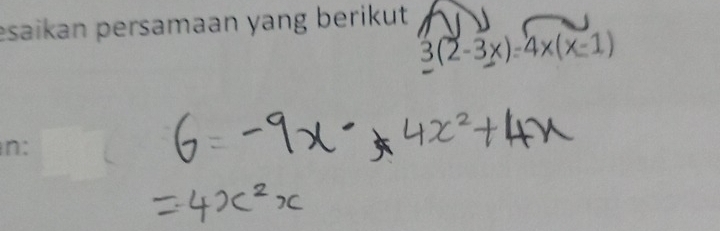 esaikan persamaan yang berikut
3(2-3x)-4x(x-1)
n: 6 = -9x - 4x² + 4x
= 4x²x